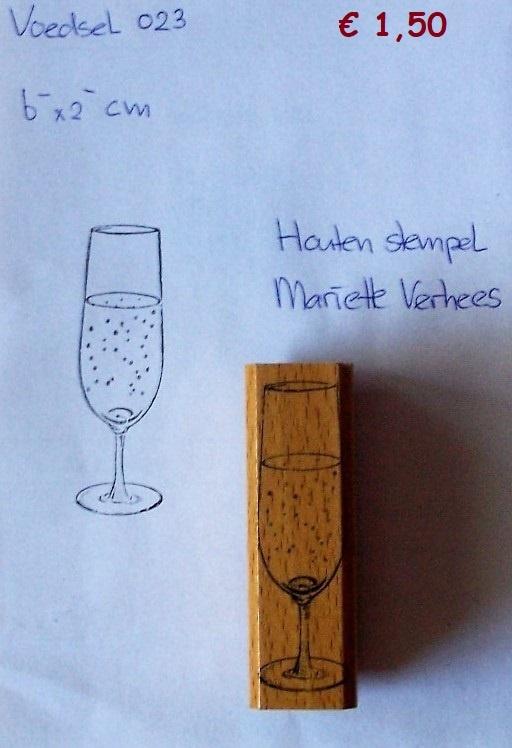 Voedsel 023
€ 1,50
6⁻ x 2⁻ cm
Houten stempel
Mariette Verhees